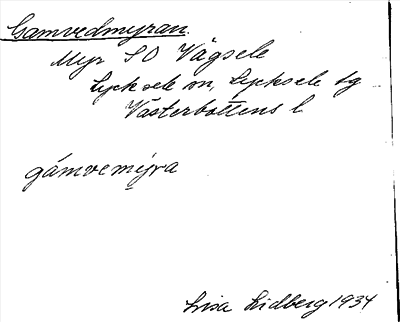 Gamvedmyran.
Myr SO Vägsele
Lycksele sn, Lycksele tg
Västerbottens l
gámvemỵ́ra
Lisa Lidberg 1934